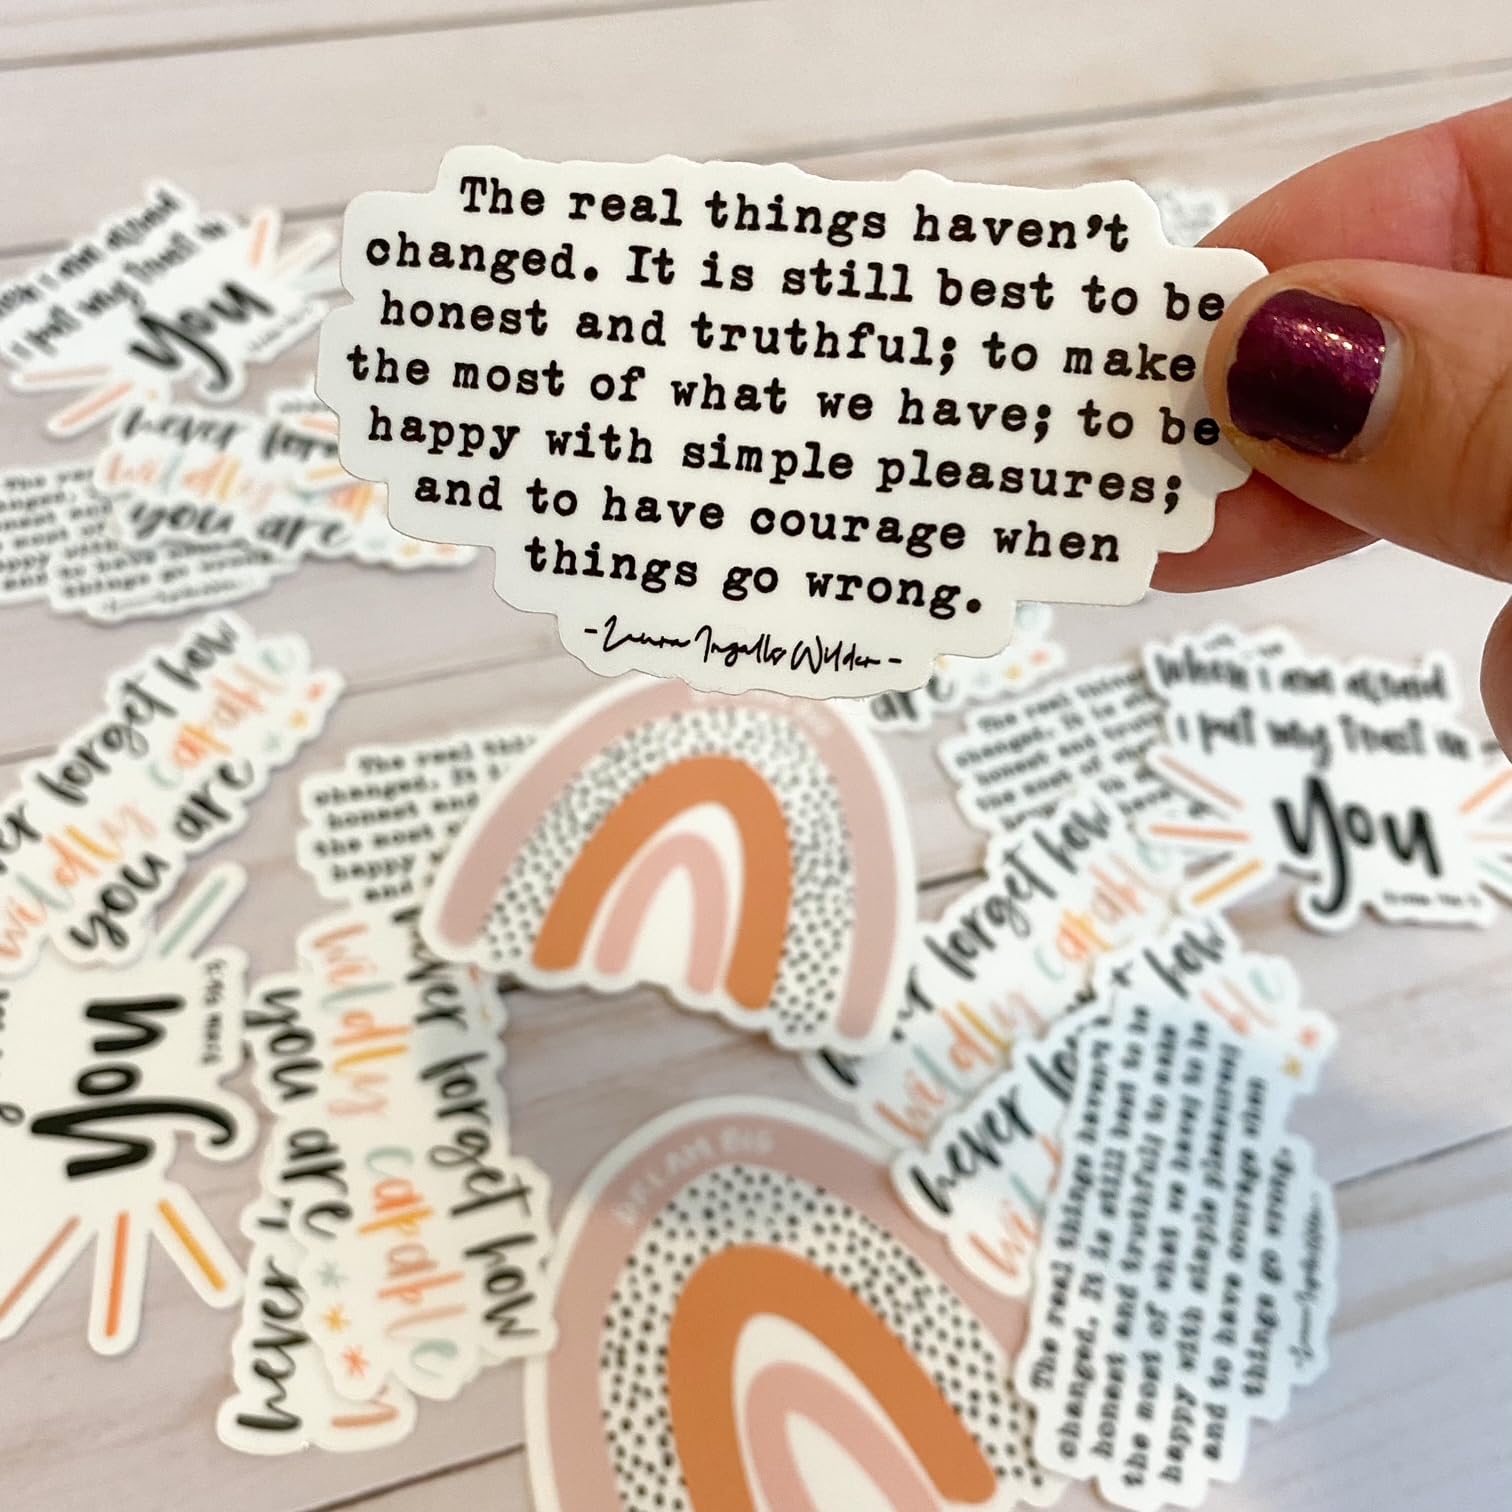 The real things haven't
changed. It is still best to be
honest and truthful; to make
the most of what we have; to be
happy with simple pleasures;
and to have courage when
things go wrong.
-Laura Ingalls Wilder-
when i am afraid
i put my trust in
you
never forget
wildly
you are
never forget how
wildly capable
you are
The real
changed. It
honest and
the most
happy
and
The real things
changed. It is
honest and
the most
when i am afraid
i put my trust in
you
forget how
wildly capable
never
how
The real things haven't
changed. It is still best to be
honest and truthful; to make
the most of what we have; to be
happy with simple pleasures;
and to have courage when
things go wrong.
-Laura Ingalls Wilder-
you
never forget how
wildly capable
you are
never
DREAM BIG